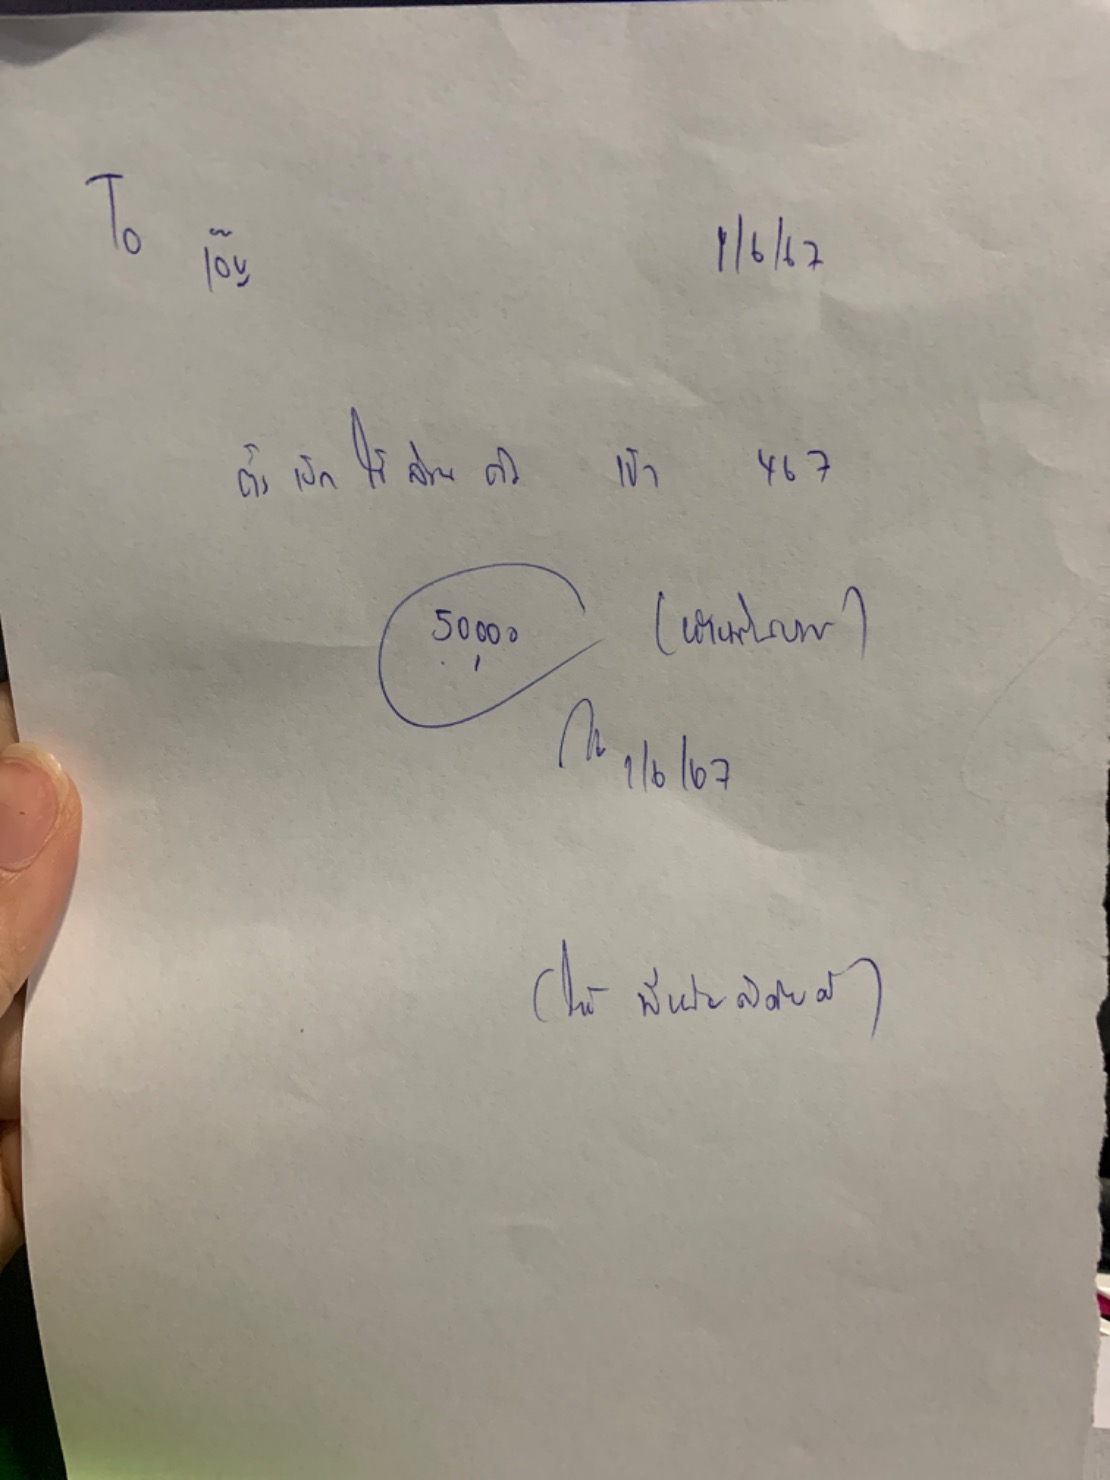 To
เอ๊ญ 1/6/67
ตั้ง เบิก ใช้ ส่วน ตัว เข้า 467
50,000 (ห้าหมื่นบาท)
1/6/67
(ให้